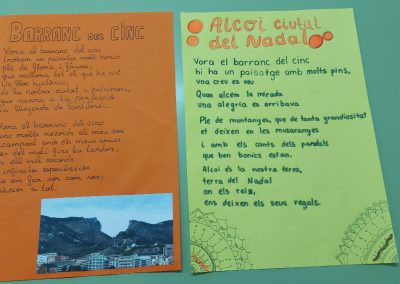 BARRANC DEL CINC
Vora el barranc del cinc
trobem un paisatge molts bonic
ple de flora i fauna,
que millora tot el que ha vist.
Un lloc històric,
de la nostra ciutat i patrimoni,
que narra a la perfecció
la llegenda de Sant Jordi.
Vora el barranc del cinc
molts records al meu cor
acampant amb els meus amics
des del matí fins la tardor.
mil records
infinites experiències
em fan ser com soc,
gràcies a tot.
Alcoi ciutat
del Nadal
Vora el barranc del cinc
hi ha un paisatge amb molts pins,
una creu es veu
Quan alcem la mirada
una alegria es arribava
Ple de muntanyes, que de tanta grandiositat
et deixen en les musaranyes
I amb els conts dels pardals
que ben bonics estan.
Alcoi és la nostra terra,
terra del Nadal
on els reis,
ens deixen els seus regals.